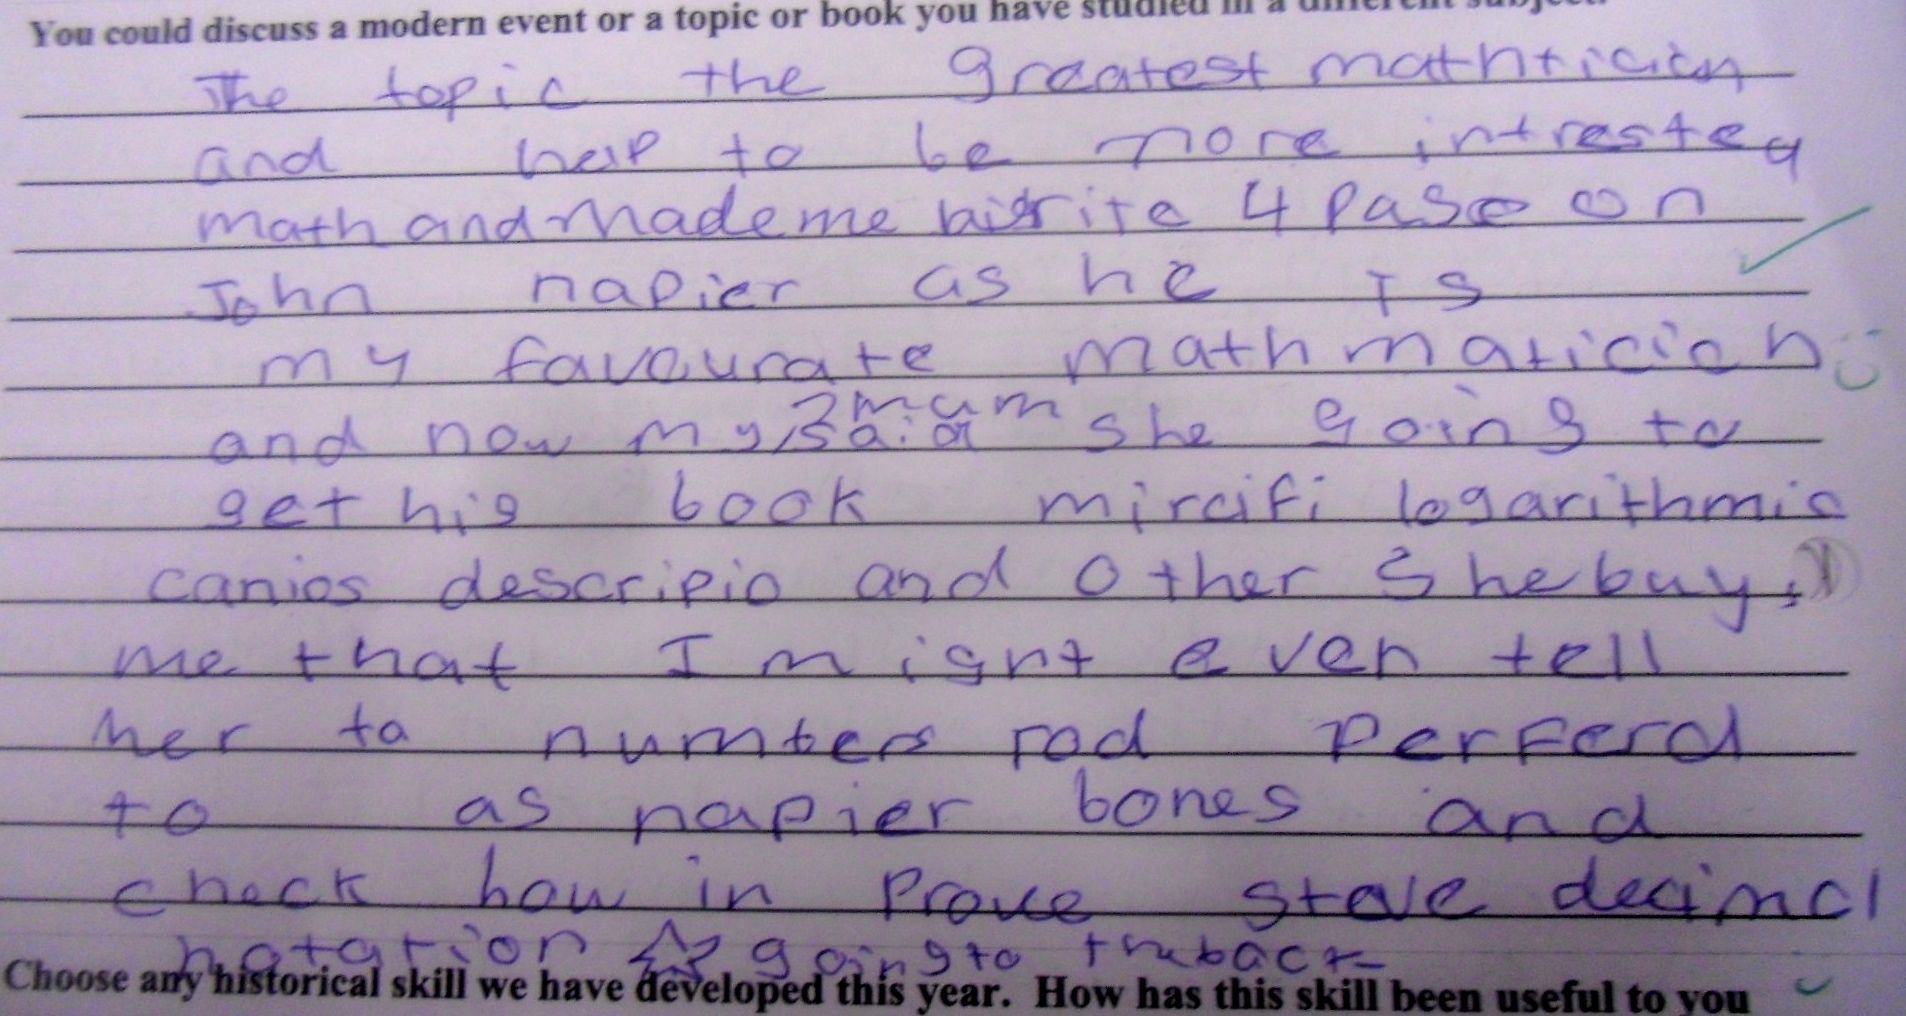 You could discuss a modern event or a topic or book you have studied in a different subject.
The topic the greatest mathticicn
and help to be more intrested
math and made me write 4 Page on
John napier as he is
my favourate mathmaticich
and now my mum said she going to
get his book mircifi logarithmic
canios descripio and other she buy
me that I might even tell
her to numbers rod perferd
to as napier bones and
check how in Prove steve decimcl
notation going to the back
Choose any historical skill we have developed this year. How has this skill been useful to you